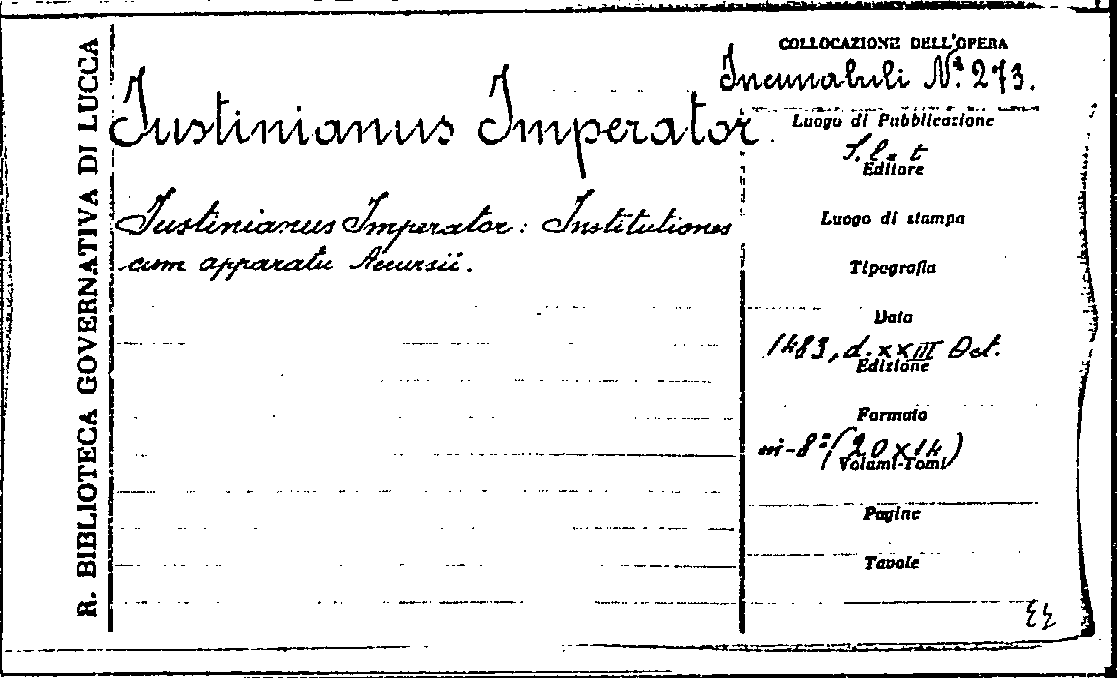 R. BIBLIOTECA GOVERNATIVA DI LUCCA
COLLOCAZIONE DELL'OPERA
Incunabuli N.º 273.
Iustinianus Imperator
Luogo di Pubblicazione
S. l. e t
Editore
Iustinianus Imperator: Institutiones
cum apparatu Accursii.
Luogo di stampa
Tipografia
Data
1483, d. XXIII Oct.
Edizione
Formato
in-8º (20 x 14)
Volumi-Tomi
Pagine
Tavole